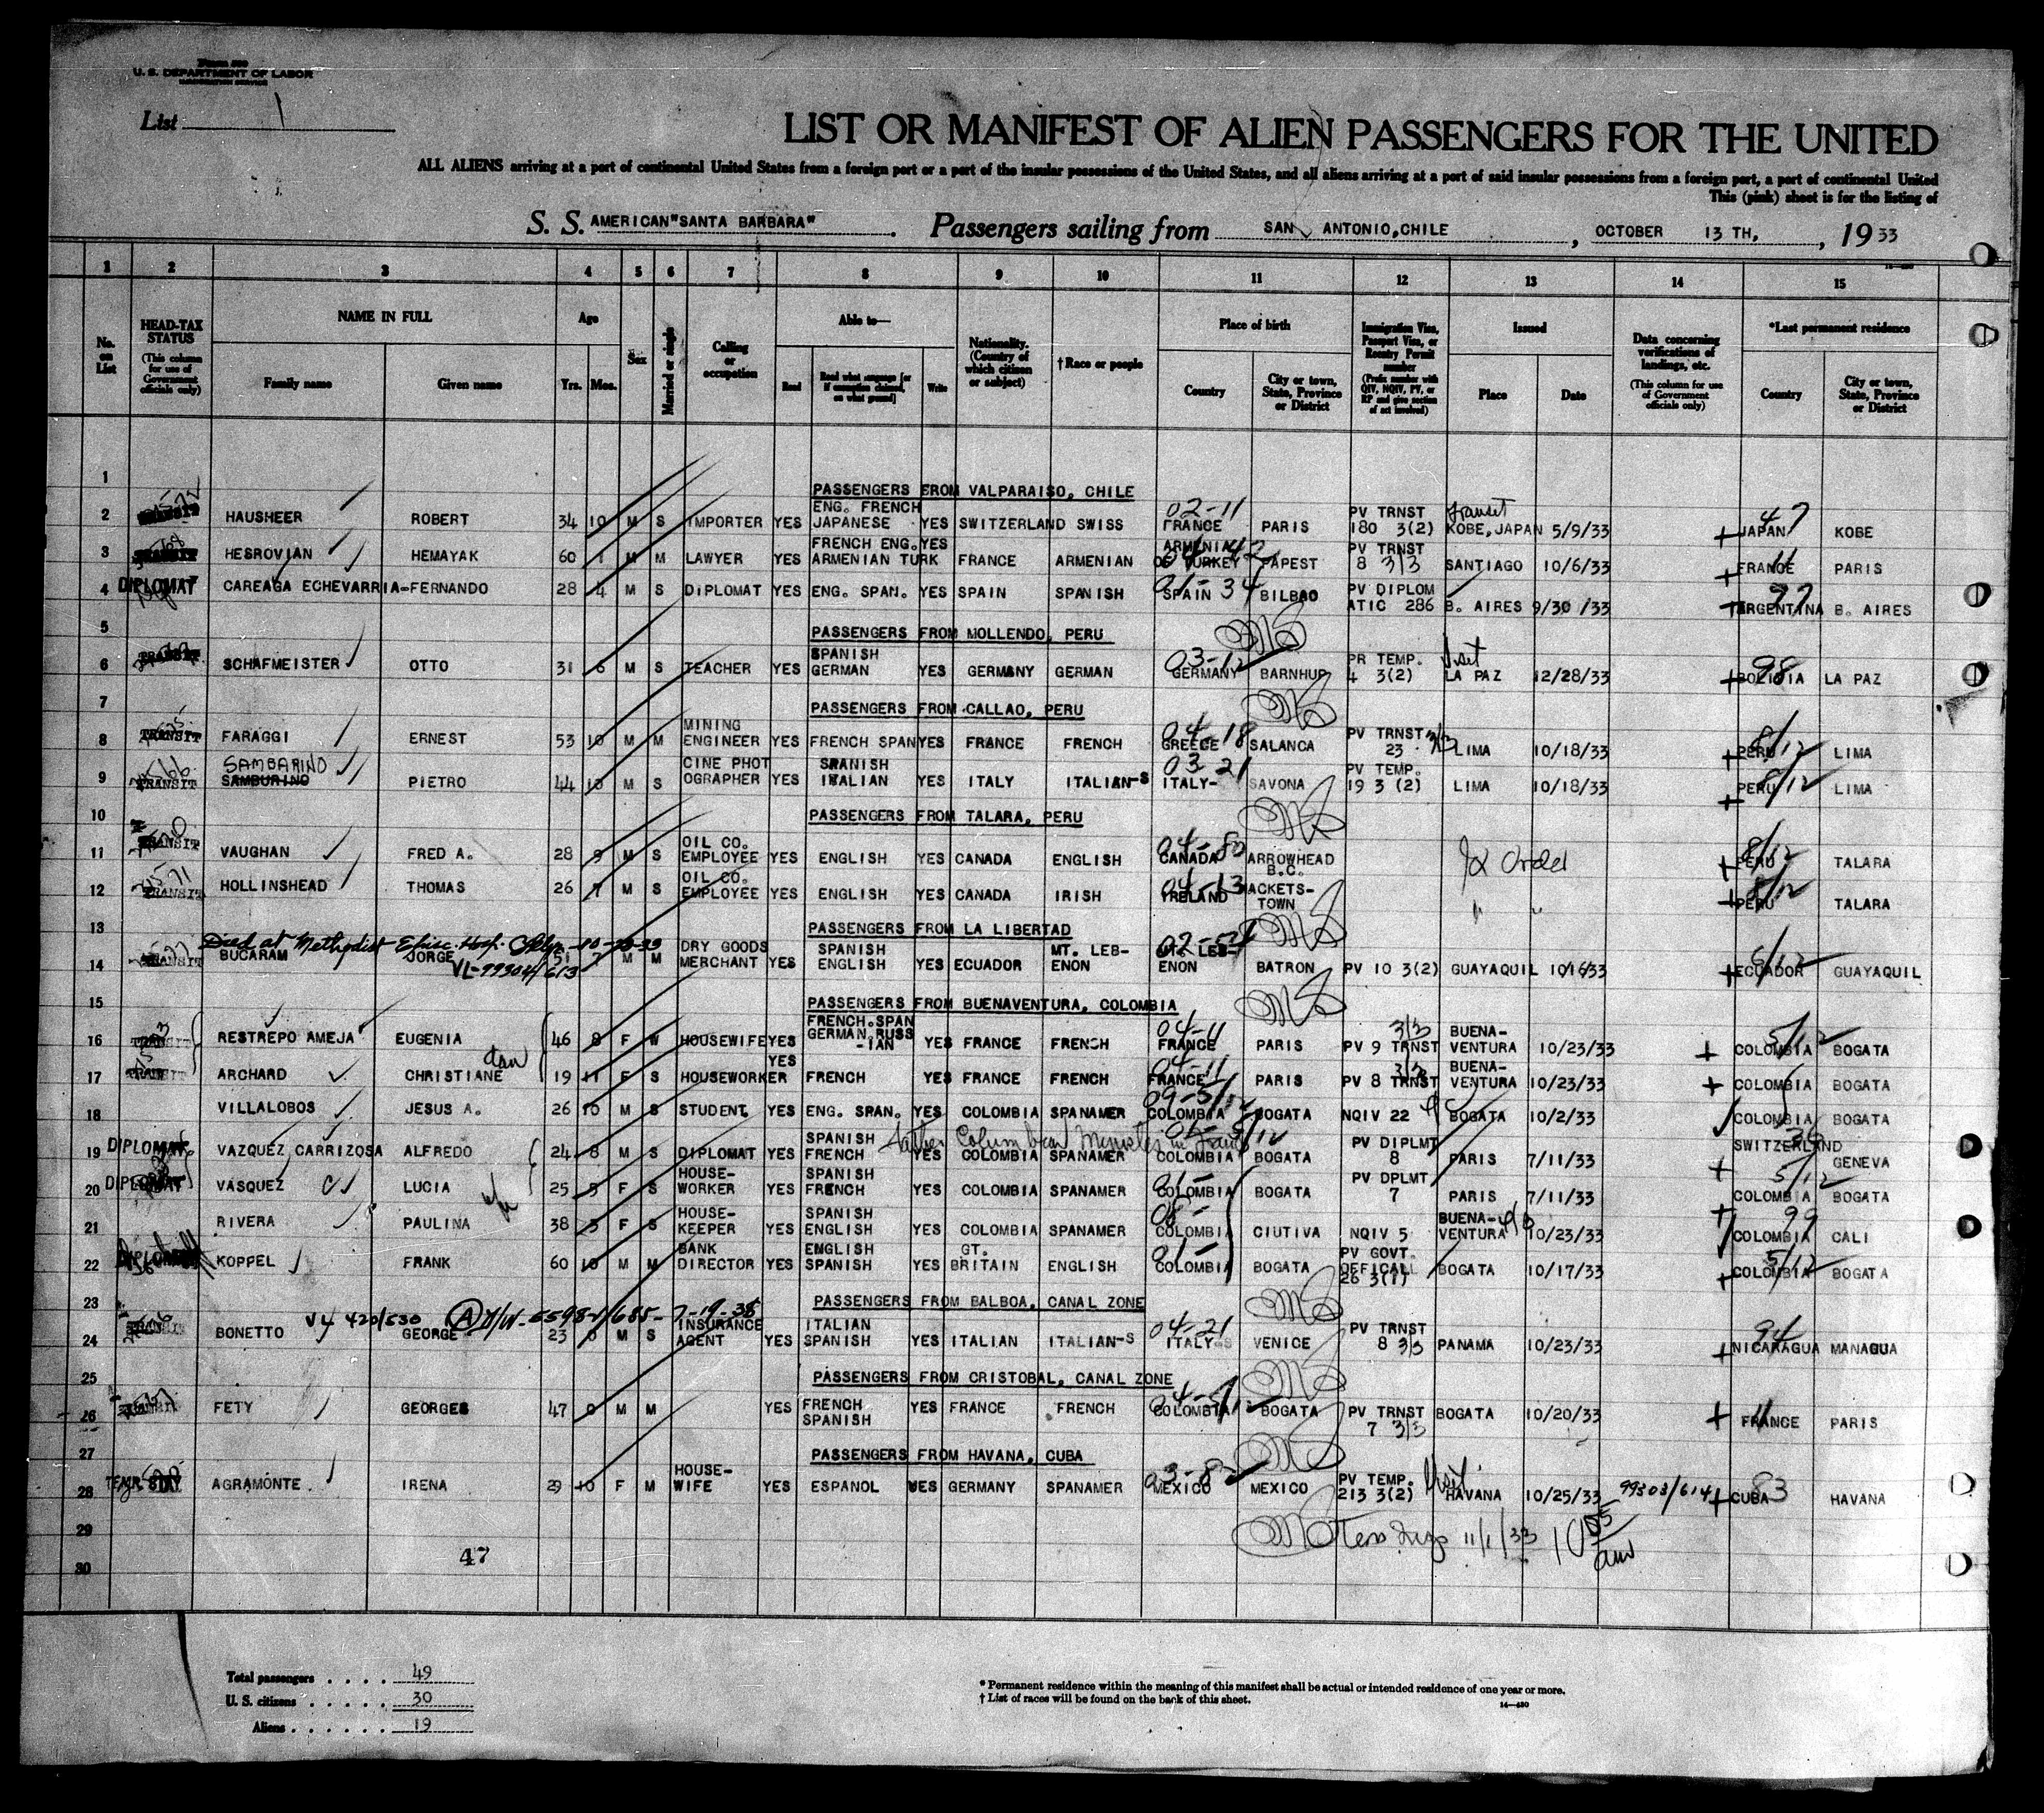 Form 500
U. S. DEPARTMENT OF LABOR
IMMIGRATION SERVICE
List 1
LIST OR MANIFEST OF ALIEN PASSENGERS FOR THE UNITED
ALL ALIENS arriving at a port of continental United States from a foreign port or a port of the insular possessions of the United States, and all aliens arriving at a port of said insular possessions from a foreign port, a port of continental United
This (pink) sheet is for the listing of
S. S. AMERICAN "SANTA BARBARA". Passengers sailing from SAN ANTONIO, CHILE, OCTOBER 13 TH, 19 33
1 2 3 4 5 6 7 8 9 10 11 12 13 14 15
No. on List
HEAD-TAX STATUS (This column for use of Government officials only)
NAME IN FULL Family name Given name
Age Yrs. Mos.
Sex
Married or single
Calling or occupation
Able to— Read Read what language [or if exemption claimed, on what ground] Write
Nationality. (Country of which citizen or subject)
†Race or people
Place of birth Country City or town, State, Province or District
Immigration Visa, Passport Visa, or Reentry Permit number (Prefix number with QIV, NQIV, PV, or RP and give section of act involved)
Issued Place Date
Data concerning verifications of landings, etc. (This column for use of Government officials only)
*Last permanent residence Country City or town, State, Province or District
1 PASSENGERS FROM VALPARAISO, CHILE
2 TRANSIT HAUSHEER ROBERT 34 10 M S IMPORTER YES ENG. FRENCH JAPANESE YES SWITZERLAND SWISS 02-11 FRANCE PARIS PV TRNST 180 3(2) Transit KOBE, JAPAN 5/9/33 47 JAPAN KOBE
3 TRANSIT HESROVIAN HEMAYAK 60 1 M M LAWYER YES FRENCH ENG. ARMENIAN TURK YES FRANCE ARMENIAN ARMENIA OF TURKEY PAPEST PV TRNST 8 3/3 SANTIAGO 10/6/33 11 FRANCE PARIS
4 DIPLOMAT CAREAGA ECHEVARRIA-FERNANDO 28 4 M S DIPLOMAT YES ENG. SPAN. YES SPAIN SPANISH 01-34 SPAIN BILBAO PV DIPLOM ATIC 286 B. AIRES 9/30/33 97 ARGENTINA B. AIRES
5 PASSENGERS FROM MOLLENDO, PERU
6 TRANSIT SCHAFMEISTER OTTO 31 6 M S TEACHER YES SPANISH GERMAN YES GERMANY GERMAN 03-12 GERMANY BARNHUP PR TEMP. 4 3(2) LA PAZ 12/28/33 98 BOLIVIA LA PAZ
7 PASSENGERS FROM CALLAO, PERU
8 TRANSIT FARAGGI ERNEST 53 10 M M MINING ENGINEER YES FRENCH SPAN YES FRANCE FRENCH 04-18 GREECE SALANCA PV TRNST 23 3/3 LIMA 10/18/33 8/12 PERU LIMA
9 TRANSIT SAMBARINO SAMBURINO PIETRO 44 10 M S CINE PHOT OGRAPHER YES SPANISH ITALIAN YES ITALY ITALIAN-S 03 21 ITALY- SAVONA PV TEMP. 19 3 (2) LIMA 10/18/33 8/12 PERU LIMA
10 PASSENGERS FROM TALARA, PERU
11 TRANSIT VAUGHAN FRED A. 28 9 M S OIL CO. EMPLOYEE YES ENGLISH YES CANADA ENGLISH 04-80 CANADA ARROWHEAD B.C. 8/12 PERU TALARA
12 TRANSIT HOLLINSHEAD THOMAS 26 7 M S OIL CO. EMPLOYEE YES ENGLISH YES CANADA IRISH 04-13 YRELAND ACKETS-TOWN " " 8/12 PERU TALARA
13 PASSENGERS FROM LA LIBERTAD
Died at Methodist Episc. Hosp.
VL-99304/613
14 TRANSIT BUCARAM JORGE 51 7 M M DRY GOODS MERCHANT YES SPANISH ENGLISH YES ECUADOR MT. LEB-ENON MT. LEB-ENON BATRON PV 10 3(2) GUAYAQUIL 10/16/33 6/12 ECUADOR GUAYAQUIL
15 PASSENGERS FROM BUENAVENTURA, COLOMBIA
16 RESTREPO AMEJA EUGENIA 46 8 F W HOUSEWIFE YES FRENCH. SPAN GERMAN RUSS -IAN YES FRANCE FRENCH 04-11 FRANCE PARIS PV 9 3/3 TRNST BUENA-VENTURA 10/23/33 5/12 COLOMBIA BOGATA
17 ARCHARD CHRISTIANE dau 19 11 F S HOUSEWORKER YES FRENCH YES FRANCE FRENCH 04-11 FRANCE PARIS PV 8 3/3 TRNST BUENA-VENTURA 10/23/33 COLOMBIA BOGATA
18 VILLALOBOS JESUS A. 26 10 M S STUDENT YES ENG. SPAN. YES COLOMBIA SPANAMER 09-5/12 COLOMBIA BOGATA NQIV 22 BOGATA 10/2/33 COLOMBIA BOGATA
19 DIPLOMAT VAZQUEZ CARRIZOSA ALFREDO 24 8 M S DIPLOMAT YES SPANISH FRENCH YES COLOMBIA SPANAMER COLOMBIA BOGATA PV DIPLMT 8 PARIS 7/11/33 SWITZERLAND GENEVA
20 DIPLOMAT VASQUEZ LUCIA 25 5 F S HOUSE-WORKER YES SPANISH FRENCH YES COLOMBIA SPANAMER 01- COLOMBIA BOGATA PV DPLMT 7 PARIS 7/11/33 5/12 COLOMBIA BOGATA
21 RIVERA PAULINA 38 3 F S HOUSE-KEEPER YES SPANISH ENGLISH YES COLOMBIA SPANAMER 08- COLOMBIA CIUTIVA NQIV 5 BUENA-VENTURA 10/23/33 99 COLOMBIA CALI
22 DIPLOMAT KOPPEL FRANK 60 10 M M BANK DIRECTOR YES ENGLISH SPANISH YES GT. BRITAIN ENGLISH 01- COLOMBIA BOGATA PV GOVT. OFFICALL 26 3(1) BOGATA 10/17/33 5/12 COLOMBIA BOGATA
23 PASSENGERS FROM BALBOA, CANAL ZONE
V4 420/530 7-19-38
24 TRANSIT BONETTO GEORGE 23 0 M S INSURANCE AGENT YES ITALIAN SPANISH YES ITALIAN ITALIAN-S 04-21 ITALY-S VENICE PV TRNST 8 3/3 PANAMA 10/23/33 94 NICARAGUA MANAGUA
25 PASSENGERS FROM CRISTOBAL, CANAL ZONE
26 FETY GEORGES 47 0 M M YES FRENCH SPANISH YES FRANCE FRENCH COLOMBIA BOGATA PV TRNST 7 3/3 BOGATA 10/20/33 11 FRANCE PARIS
27 PASSENGERS FROM HAVANA, CUBA
28 TEMP. STAY AGRAMONTE IRENA 29 10 F M HOUSE-WIFE YES ESPANOL YES GERMANY SPANAMER 03-82 MEXICO MEXICO PV TEMP. 213 3(2) Visit HAVANA 10/25/33 99303/614 83 CUBA HAVANA
29 11/1/33 10 05 am
30
47
Total passengers . . . . 49
U. S. citizens . . . . . 30
Aliens . . . . . . 19
* Permanent residence within the meaning of this manifest shall be actual or intended residence of one year or more.
† List of races will be found on the back of this sheet.
14—480